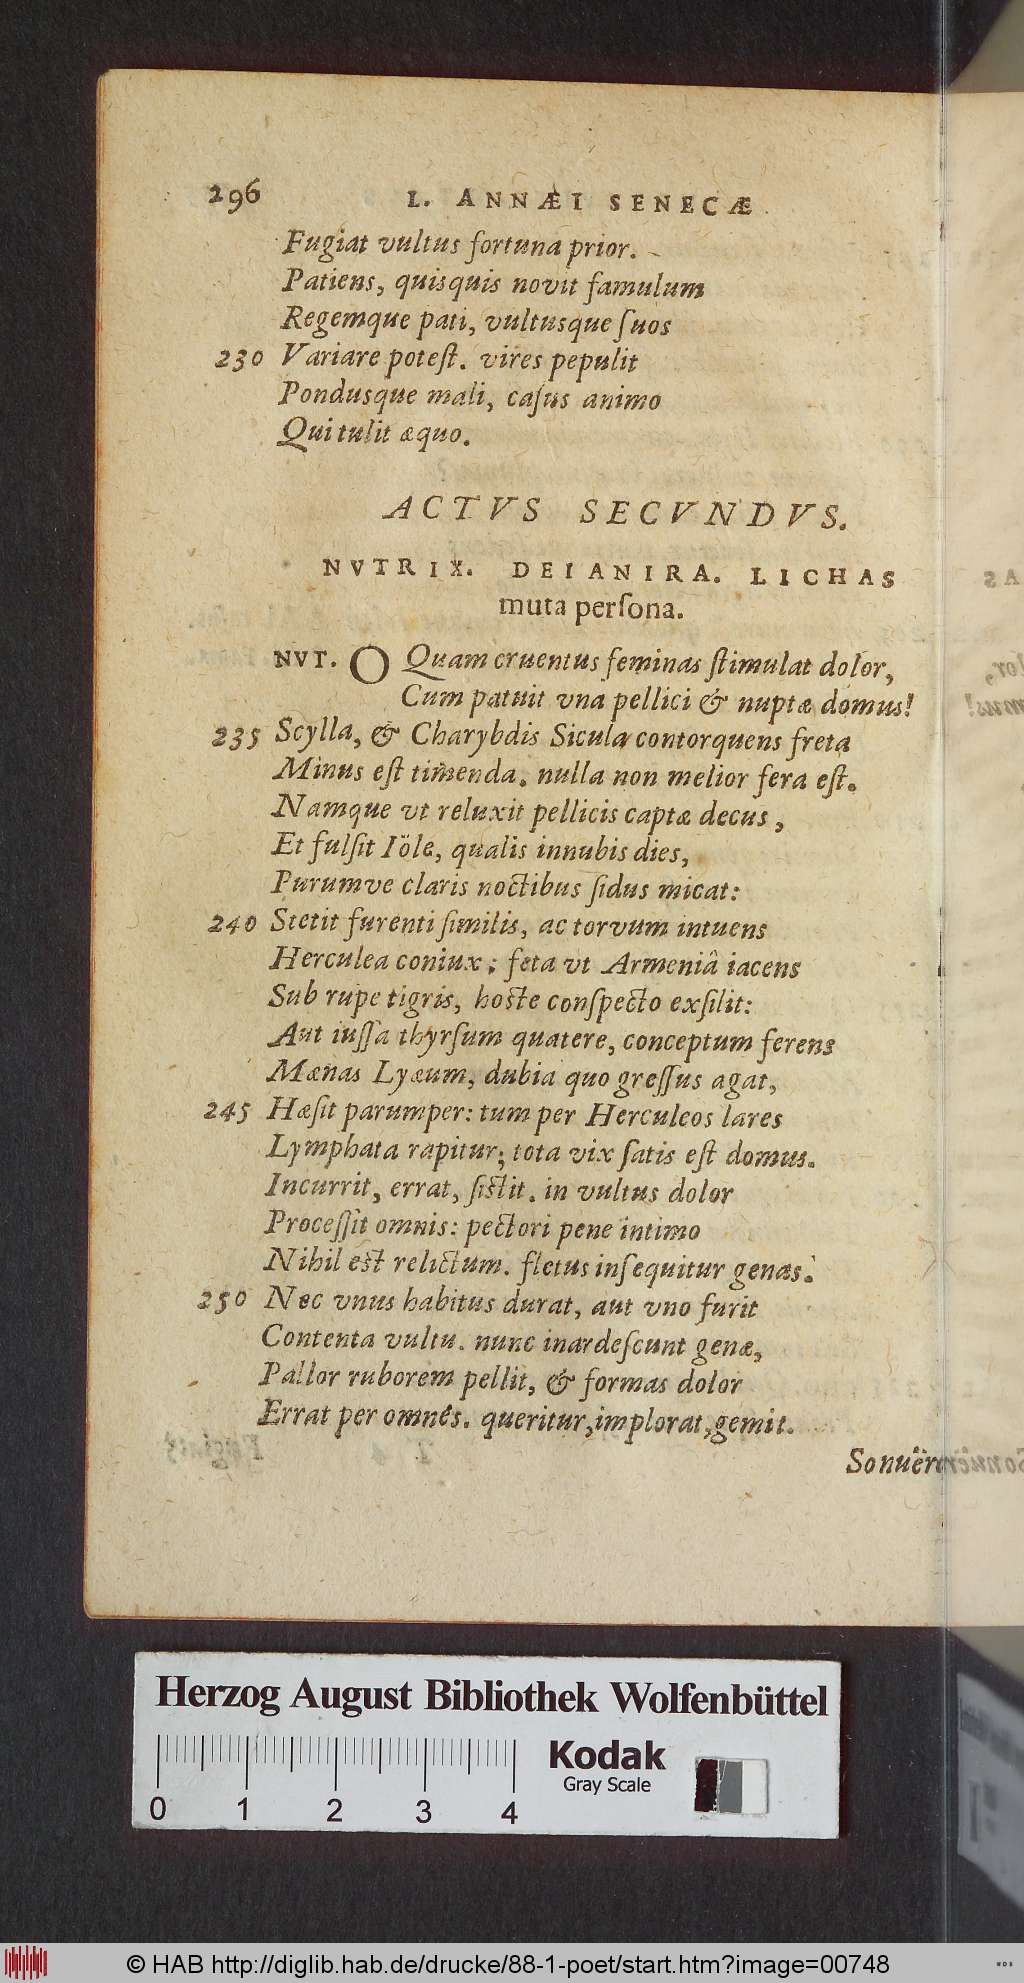 296 L. ANNÆI SENECÆ
Fugiat vultus fortuna prior.
Patiens, quisquis novit famulum
Regemque pati, vultusque ſuos
230 Variare poteſt. vires pepulit
Pondusque mali, caſus animo
Qui tulit æquo.
ACTVS SECVNDVS.
NVTRIX. DEIANIRA. LICHAS
muta perſona.
NVT. O Quam cruentus feminas ſtimulat dolor,
Cum patuit vna pellici & nuptæ domus!
235 Scylla, & Charybdis Sicula contorquens freta
Minus eſt timenda. nulla non melior fera eſt.
Namque vt reluxit pellicis captæ decus,
Et fulſit Iöle, qualis innubis dies,
Purumve claris noctibus ſidus micat:
240 Stetit furenti ſimilis, ac torvum intuens
Herculea coniux; feta vt Armeniâ iacens
Sub rupe tigris, hoſte conſpecto exſilit:
Aut iuſſa thyrſum quatere, conceptum ferens
Mænas Lyæum, dubia quo greſſus agat,
245 Hæſit parumper: tum per Herculeos lares
Lymphata rapitur; tota vix ſatis eſt domus.
Incurrit, errat, ſiſtit. in vultus dolor
Proceſſit omnis: pectori pene intimo
Nihil eſt relictum. fletus inſequitur genas.
250 Nec vnus habitus durat, aut vno furit
Contenta vultu. nunc inardeſcunt genæ,
Pallor ruborem pellit, & formas dolor
Errat per omnes. queritur, implorat, gemit.
Sonuêre
Herzog August Bibliothek Wolfenbüttel
Kodak
Gray Scale
0 1 2 3 4
© HAB http://diglib.hab.de/drucke/88-1-poet/start.htm?image=00748